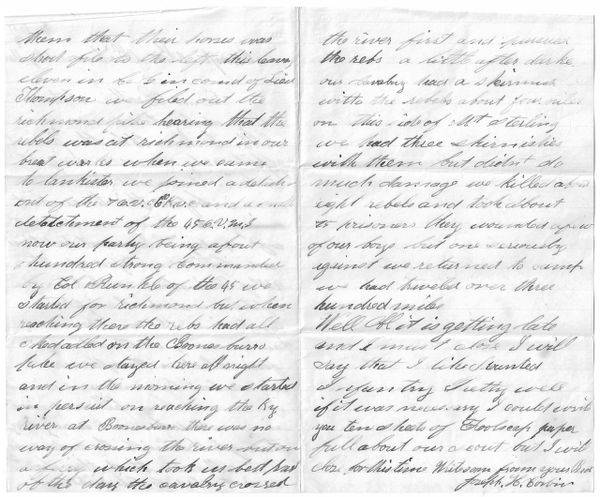 them that their horses was
shod file to the left this leaving
eleven in Co C in comd of Lieut
Thompson we filed out the
richmond pike hearing that the
rebels was at richmond in our
brest works when we came
to lankister we joined a detachm
out of the and a small
detatchment of the 45 O.V.M.I
now our party being about
hundred strong commanded
by Col Runkle of the 45 we
started for richmond but when
reaching there the rebs had all
skedadled on the Boonesburro
pike we stayed here all night
and in the morning we started
in persuit on reaching the Ky
river at Boonesburr there was no
way of crossing the river but on
a ferry which took us best part
of the day the cavalry crossed
the river first and pursued
the rebs a little after darke
our cavalry had a skirmish
withe the rebels about four miles
on this side of Mt Sterling
we had three skirmishes
with them but didnt do
much damage we killed about
eight rebels and took about
prisoners they wounded a few
of our boys but one seriously
against we returned to camp
we had traveled over three
hundred miles
Well it is getting late
and I must close I will
say that I like mounted
infantry pretty well
if it was necessary I could write
you ten sheets of Foolscap paper
full about our scout but I will
close for this time Write soon from your
Joseph H. Corbin